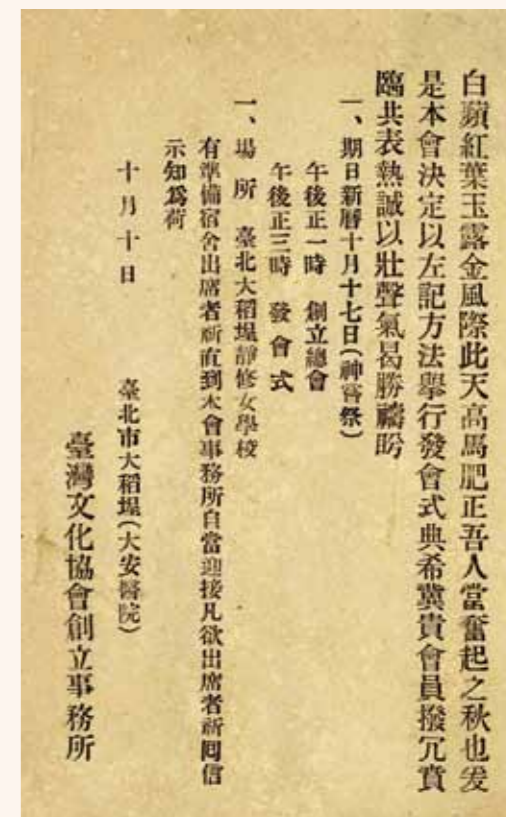 白蘋紅葉玉露金風際此天高馬肥正吾人當奮起之秋也爰
是本會決定以左記方法舉行發會式典希冀貴會員撥冗賁
臨共表熱誠以壯聲氣曷勝禱盼
一、期日新曆十月十七日(神嘗祭)
午後正一時 創立總會
午後正三時 發會式
一、場所 臺北大稻埕靜修女學校
有準備宿舍出席者祈直到本會事務所自當迎接凡欲出席者祈囘信
示知爲荷
十月十日
臺北市大稻埕(大安醫院)
臺灣文化協會創立事務所